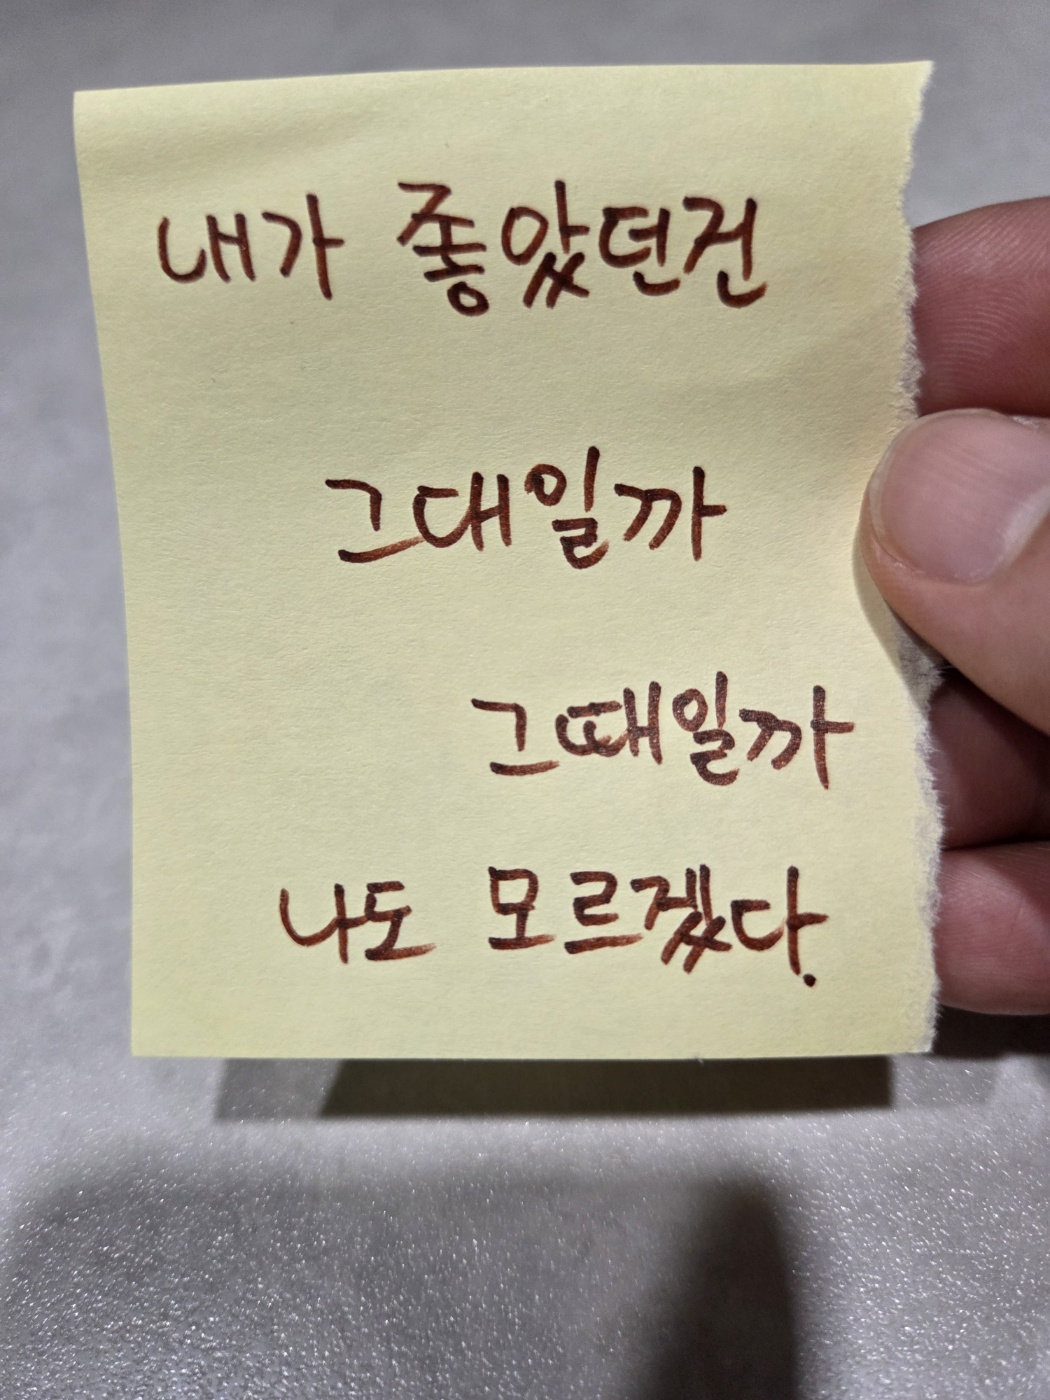 내가 좋았던건
그대일까
그때일까
나도 모르겠다.